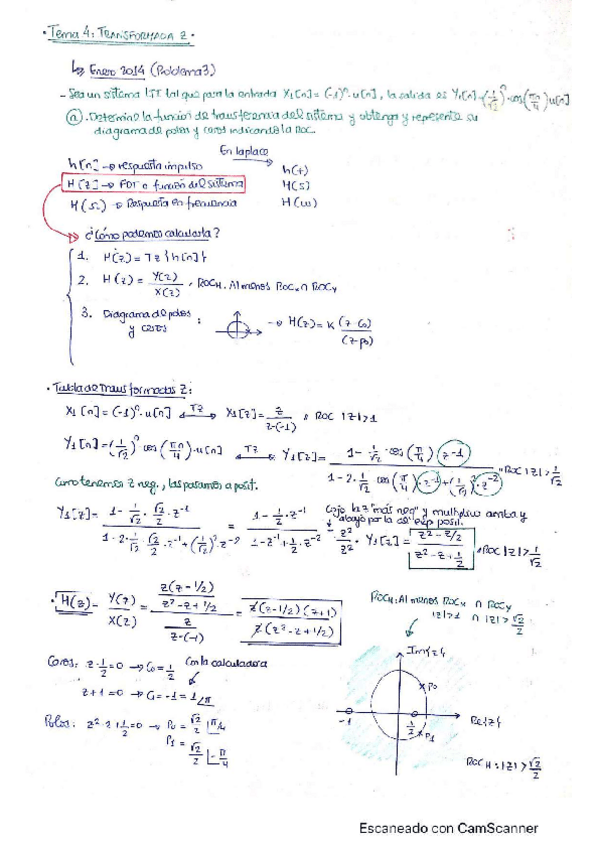 · Tema 4: TRANSFORMADA Z ·
↳ Enero 2014 (Problema 3)
- Sea un sistema LTI tal que para la entrada X1[n] = (-1)^n · u[n], la salida es Y1[n] = (1/√2)^n · cos(πn/4) u[n]
ⓐ. Determine la función de transferencia del sistema y obtenga y represente su
diagrama de polos y ceros indicando la ROC.
En laplace
h[n] → respuesta impulso h(t)
H[z] → FDT o función del sistema H(s)
H(Ω) → Respuesta en frecuencia H(ω)
¿Cómo podemos calcularla?
1. H(z) = TZ{h[n]}
2. H(z) = Y(z)/X(z), ROC_H. Al menos ROC_X ∩ ROC_Y
3. Diagrama de polos y ceros : → H(z) = K (z-c0)/(z-p0)
· Tabla de transformadas Z:
X1[n] = (-1)^n · u[n] ←TZ→ X1[z] = z/(z-(-1)), ROC |z|>1
Y1[n] = (1/√2)^n cos(πn/4) · u[n] ←TZ→ Y1[z] = (1 - 1/√2 · cos(π/4) z^-1)/(1 - 2 · 1/√2 cos(π/4) z^-1 + (1/√2)^2 z^-2), ROC |z| > 1/√2
Como tenemos z neg., las pasamos a posit.
Cojo la z "más neg" y multiplico arriba y
abajo por la de exp posit.
Y1[z] = (1 - 1/√2 · √2/2 · z^-1)/(1 - 2 · 1/√2 · √2/2 · z^-1 + (1/√2)^2 z^-2) = (1 - 1/2 · z^-1)/(1 - z^-1 + 1/2 · z^-2) · z^2/z^2 · Y1[z] = (z^2 - z/2)/(z^2 - z + 1/2), ROC |z| > 1/√2
· H(z) = Y(z)/X(z) = (z(z-1/2)/(z^2-z+1/2))/(z/(z-(-1))) = z(z-1/2)(z+1)/z(z^2-z+1/2)
ROC_H: Al menos ROC_X ∩ ROC_Y
|z|>1 ∩ |z|>√2/2
Ceros: z-1/2=0 → C0 = 1/2 Con la calculadora
z+1=0 → C1 = -1 = 1 ∠π
Polos: z^2-z+1/2=0 → P0 = √2/2 ∠π/4
P1 = √2/2 ∠-π/4
Im{z}
P0
-1 1/2 Re{z}
P1
ROC_H: |z| > √2/2
Escaneado con CamScanner